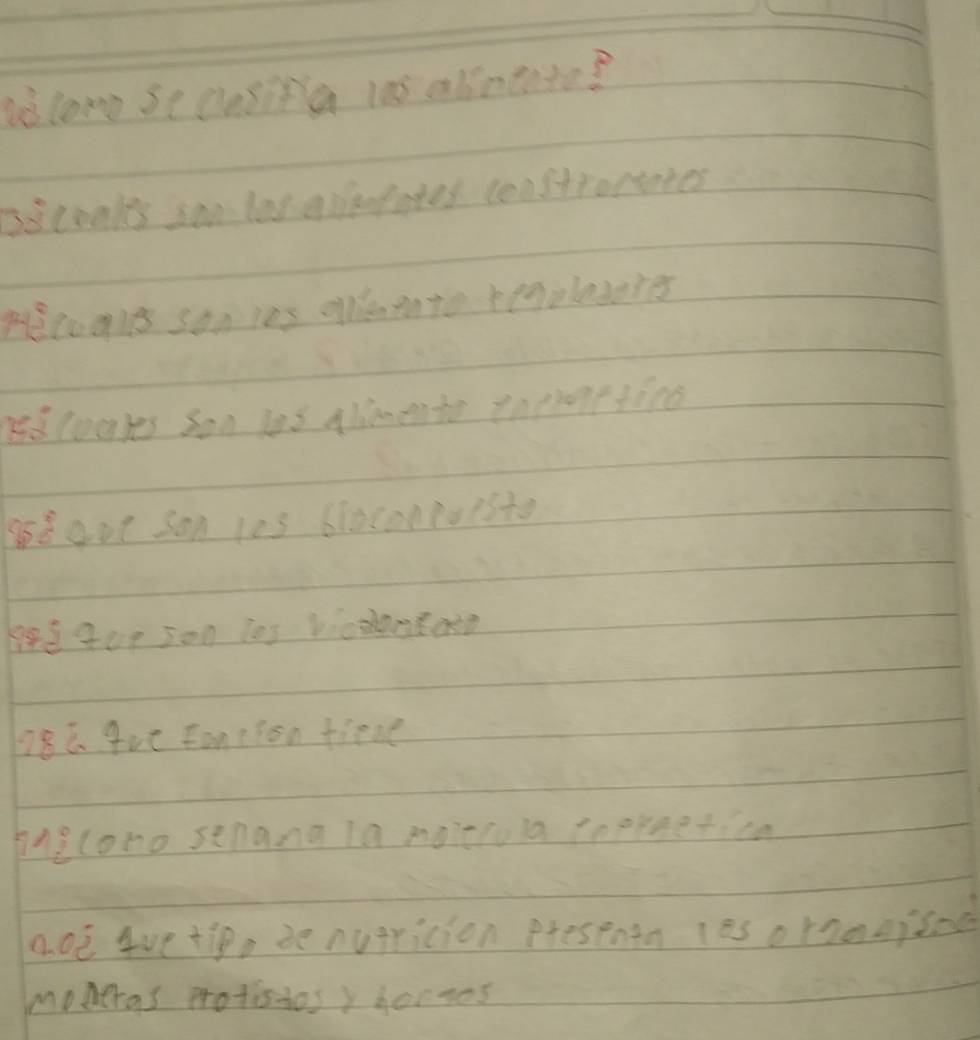 como se clasifica los alimento?
13¿cuales son los alimentos constructores
14¿cuales son los alimento reguladores
15¿cuales son los alimento energetico
¿que son los biocompuesto
¿que son los
18¿ que funcion tiene
¿como sellama la molecula energetica
20¿ que tipo de nutricion presentan los organismo
moneras protistos y hongos